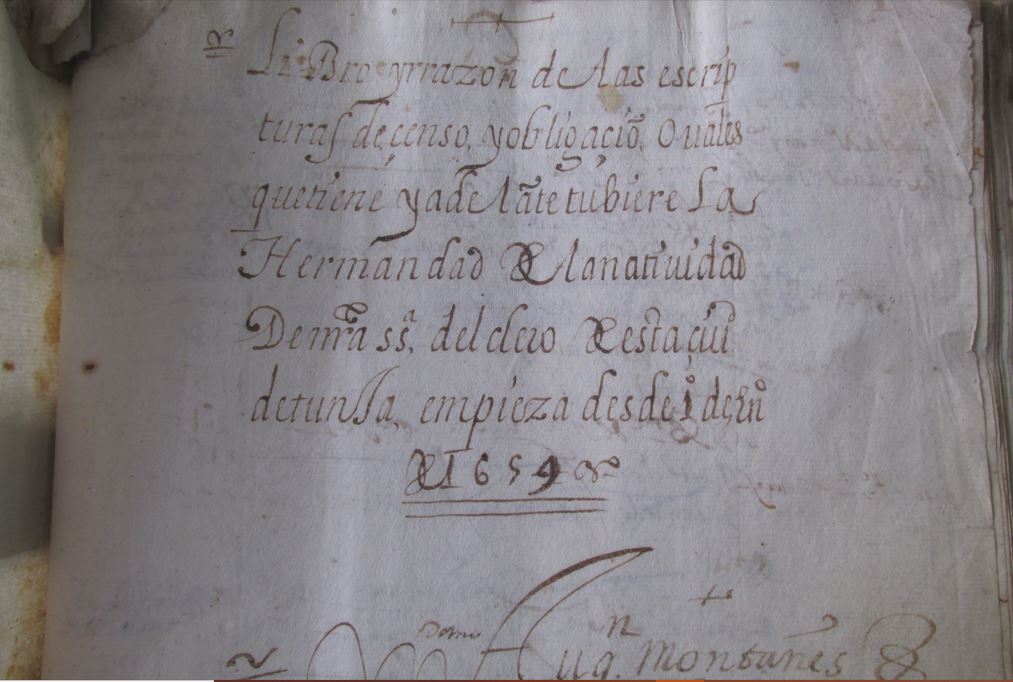 LiBro yrrazon de las escrip
turas de çenso, y obligaçiõ, o uales
que tiene y adelãte tubiere La
Hermandad De la natiuidad
De nrã ssª, del clero De esta çiuᵈ
de tunJa, empieza desde 1º de Enº
De 1659
Montañes